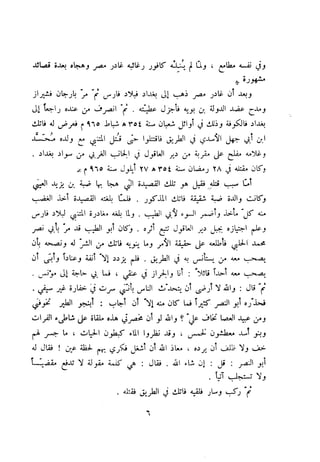 وفي نفسه مطامع ، ولما لم يُنِله كافور رغائبه غادر مصر وهجاه بعدة قصائد
مشهورة .
وبعد أن غادر مصر ذهب إلى بغداد فبلاد فارس ثم مر بأرجان فشيراز
ومدح عضد الدولة بن بويه فأجزل عطيته . ثم انصرف من عنده راجعاً إلى
بغداد فالكوفة وذلك في أوائل شعبان سنة ٣٥٤ ه شباط ٩٦٥ م فعرض له فاتك
ابن أبي جهل الأسدي في الطريق فاقتتلوا حتى قُتل المتنبي مع ولده محسّد
وغلامه مفلح على مقربة من دير العاقول في الجانب الغربي من سواد بغداد .
وكان مقتله في ٢٨ رمضان سنة ٣٥٤ ه ٢٧ أيلول سنة ٩٦٥ م .
أما سبب قتله فقيل هو تلك القصيدة التي هجا بها ضبة بن يزيد العيني
وكانت والدة ضبة شقيقة فاتك المذكور . فلما بلغته القصيدة أخذ الغضب
منه كل مأخذ وأضمر السوء لأبي الطيب . ولما بلغه مغادرة المتنبي لبلاد فارس
وعلم اجتيازه بجبل دير العاقول تتبع أثره . وكان أبو الطيب قد مر بأبي نصر
محمد الحلبي فأطلعه على حقيقة الأمر وما ينويه فاتك من الشر له ونصحه بأن
يصحب معه من يستأنس به في الطريق . فلم يزد إلا أنفة وعناداً وأبى أن
يصحب معه أحداً قائلاً : أنا والجراز في عنقي ، فما بي حاجة إلى مؤنس .
ثم قال : والله لا أرضى أن يتحدث الناس بأني سرت في خفارة غير سيفي .
فحذره أبو النصر كثيراً فما كان منه إلا أن أجاب : أبنجو الطير تخوفني
ومن عبيد العصا تخاف عليّ ؟ والله لو أن مخصرتي هذه ملقاة على شاطىء الفرات
وبنو أسد معطشون لخمس ، وقد نظروا الماء كبطون الحيات ، ما جسر لهم
خف ولا ظلف أن يرده ، معاذ الله أن أشغل فكري بهم لحظة عين ! فقال له
أبو النصر : قل : إن شاء الله . فقال : هي كلمة مقولة لا تدفع مقضيّاً
ولا تستجلب آتياً .
ثم ركب وسار فلقيه فاتك في الطريق فقتله .
٦